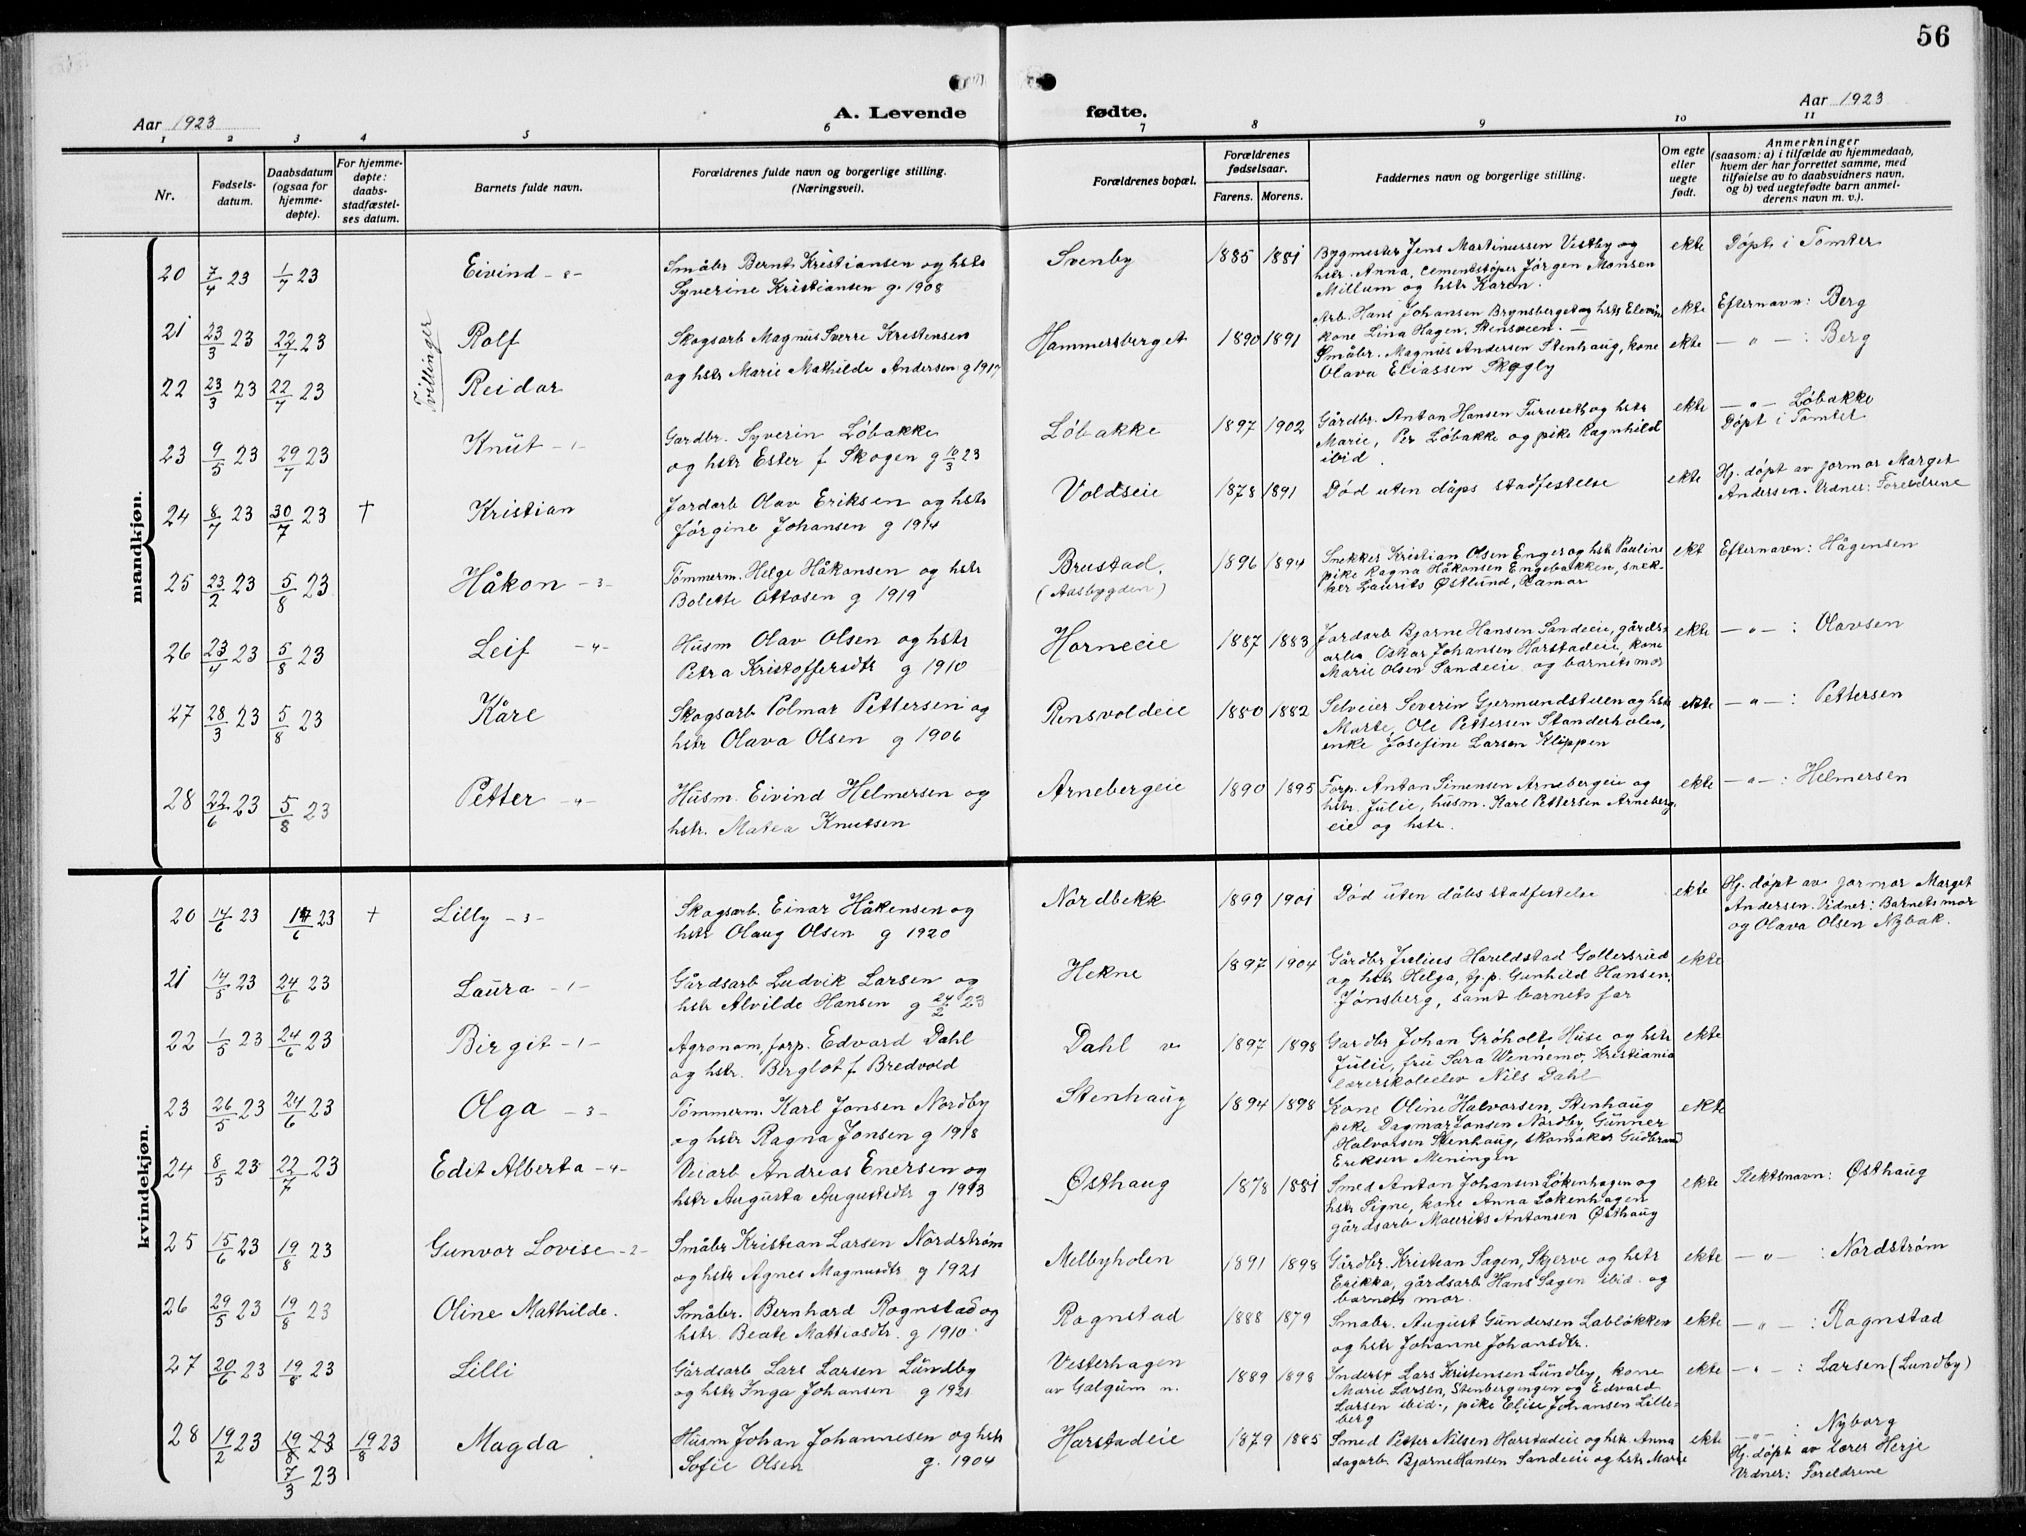 56
Aar 1923
A. Levende fødte.
Aar 1923
1 2 3 4 5 6 7 8 9 10 11
Nr.
Fødsels-
datum.
Daabsdatum
(ogsaa for
hjemme-
døpte).
For hjemme-
døpte:
daabs-
stadfæstel-
ses datum.
Barnets fulde navn.
Forældrenes fulde navn og borgerlige stilling.
(Næringsvei).
Forældrenes bopæl.
Forældrenes
fødselsaar.
Farens. Morens.
Faddernes navn og borgerlige stilling.
Om egte
eller
uegte
født.
Anmerkninger
(saasom: a) i tilfælde av hjemmedaab,
hvem der har forrettet samme, med
tilføielse av to daabsvidners navn,
og b) ved uegtefødte barn anmel-
derens navn m. v.).
mandkjøn.
20 7/4 23 1/7 23 Eivind - 8 -
Småbr Bernt Kristiansen og hstr
Syverine Kristiansen g. 1908
Svenby 1885 1881
Bygmester Jens Martinussen Vestby og
hstr. Anna, cementstøper Jørgen Monsen
Millum og hstr Karen.
ekte Døpt i Tomter
Tvillinger
21 23/3 23 22/7 23 Rolf
22 23/3 23 22/7 23 Reidar
Skogsarb Magnus Sverre Kristensen
og hstr Marie Mathilde Andersen g 1917
Hammersberget 1890 1891
Arb. Hans Johansen Brynsberget og hstr
kone Lina Hagen, Stensveien. —
Småbr. Magnus Andersen Stenhaug, kone
Olava Eliassen Skogly
ekte Efternavn: Berg
ekte — " — : Berg
23 9/5 23 29/7 23 Knut - 1 -
Gardbr. Syverin Løbakke
og hstr Ester f Skogen g 10/3 23
Løbakke 1897 1902
Gårdbr. Anton Hansen Furuseth og hstr
Marie, Per Løbakke og pike Ragnhild
ibid.
ekte — " — Løbakke
Døpt i Tomter
24 8/7 23 30/7 23 † Kristian
Jordarb Olav Eriksen og hstr
Jørgine Johansen g 1914
Voldseie 1878 1891
Død uten dåps stadfestelse
ekte Hj. døpt av jormor Marget
Andersen. Vidner: Foreldrene
25 23/2 23 5/8 23 Håkon - 3 -
Tømmerm. Helge Håkonsen og hstr
Bolette Ottosen g 1919
Brustad,
(Aasbygden)
1896 1894
Snekker Kristian Olsen Enger og hstr Pauline
pike Ragna Håkonsen Engebakken, snek-
ker Laurits Østlund, Hamar
ekt Efternavn: Hågensen
26 23/4 23 5/8 23 Leif - 4 -
Husm Olav Olsen og hstr
Petra Kristoffersdtr g 1910
Horneeie 1887 1883
Jordarb Bjarne Hansen Sandeeie, gårds-
arb. Oskar Johansen Harstadeie, kone
Marie Olsen Sandeeie og barnets mor
ekte — " — : Olavsen
27 28/3 23 5/8 23 Kåre
Skogsarb Polmar Pettersen og
hstr Olava Olsen g 1906
Rensvoldeie 1880 1882
Selveier Severin Gjermundstuen og hstr
Marte, Ole Pettersen Standerholen,
enke Josefine Larsen Klippen
ekte — " — : Pettersen
28 22/6 23 5/8 23 Petter - 4 -
Husm. Eivind Helmersen og
hstr. Matea Knutsen
Arnebergeie 1890 1895
Forp. Anton Simensen Arnebergeie og
hstr. Julie, husm. Karl Pettersen Arneberg
eie og hstr.
ekte — " — : Helmersen
kvindekjøn.
20 14/6 23 14/6 23 † Lilly - 3 -
Skogsarb. Einar Håkensen og
hstr Olaug Olsen g 1920
Nordbekk 1899 1901
Død uten dåbs stadfestelse
ekte Hj. døpt av jormor Marget
Andersen. Vidner: Barnets mor
og Olava Olsen Nybak.
21 14/5 23 24/6 23 Laura - 1 -
Gårdsarb Ludvik Larsen og
hstr Alvilde Hansen g 24/2 23
Hekne 1897 1904
Gårdbr Julius Hareldstad Gollersrud
og hstr Helga, tj. p. Gunhild Hansen,
Jønsberg, samt barnets far
ekte
22 1/5 23 24/6 23 Birgit - 1 -
Agronom, forp. Edvard Dahl
og hstr. Berglot f Bredvold
Dahl v 1897 1898
Gardbr Johan Grøholt, Huse og hstr
Julie, fru Sara Wennemo, Kristiania
lærerskoleelev Nils Dahl
ekte
23 26/5 23 24/6 23 Olga - 3 -
Tømmerm. Karl Jonsen Nordby
og hstr Ragna Jonsen g 1918
Stenhaug 1894 1898
Kone Oline Halvorsen, Stenhaug
pike Dagmar Jonsen Nordby, Gunner
Halvorsen Stenhaug, skomaker Gudbrand
Eriksen Meningen
ekte
24 8/5 23 22/7 23 Edit Alberta - 4 -
Veiarb Andreas Enersen og
hstr Augusta Augustsdtr g 1913
Østhaug 1878 1881
Smed Anton Johansen Løkenhagen og
hstr Signe, kone Anna Løkenhagen
gårdsarb Maurits Antonsen Østhaug
ekte Slektsnavn: Østhaug
25 15/6 23 19/8 23 Gunvor Lovise - 2 -
Småbr Kristian Larsen Nordstrøm
og hstr Agnes Magnusdtr g 1921
Melbyholen 1891 1898
Gårdbr. Kristian Sagen, Skjerve og hstr
Erikka, gårdsarb Hans Sagen ibid. og
barnets mor.
ekte — " — : Nordstrøm
26 29/5 23 19/8 23 Oline Mathilde.
Småbr. Bernhard Rognstad og
hstr. Beate Mattiasdtr. g 1910.
Rognstad 1888 1879
Småbr. August Gundersen Labløkken
og hstr Johanne Johansdtr.
ekte — " — : Rognstad
27 20/6 23 19/8 23 Lilli
Gårdsarb Lars Larsen Lundby
og hstr Inga Johansen g 1921
Vesterhagen
av Galgum n.
1889 1898
Inderst Lars Kristensen Lundby, kone
Marie Larsen, Stenbergengen og Edvard
Larsen ibid., pike Elise Johansen Lille-
berg
ekte — " — : Larsen (Lundby)
28 19/2 23 19/8 23 19/8 23 Magda
7/3 23
Husm Johan Johannesen og hstr
Sofie Olsen g. 1904
Harstadeie 1879 1885
Smed Petter Nilsen Harstadeie og hstr Anna
dagarb. Bjarne Hansen Sandeeie og hstr Marie
ekte — " — : Nyborg
Hj. døpt av Lærer Herje
Vidner: Foreldrene